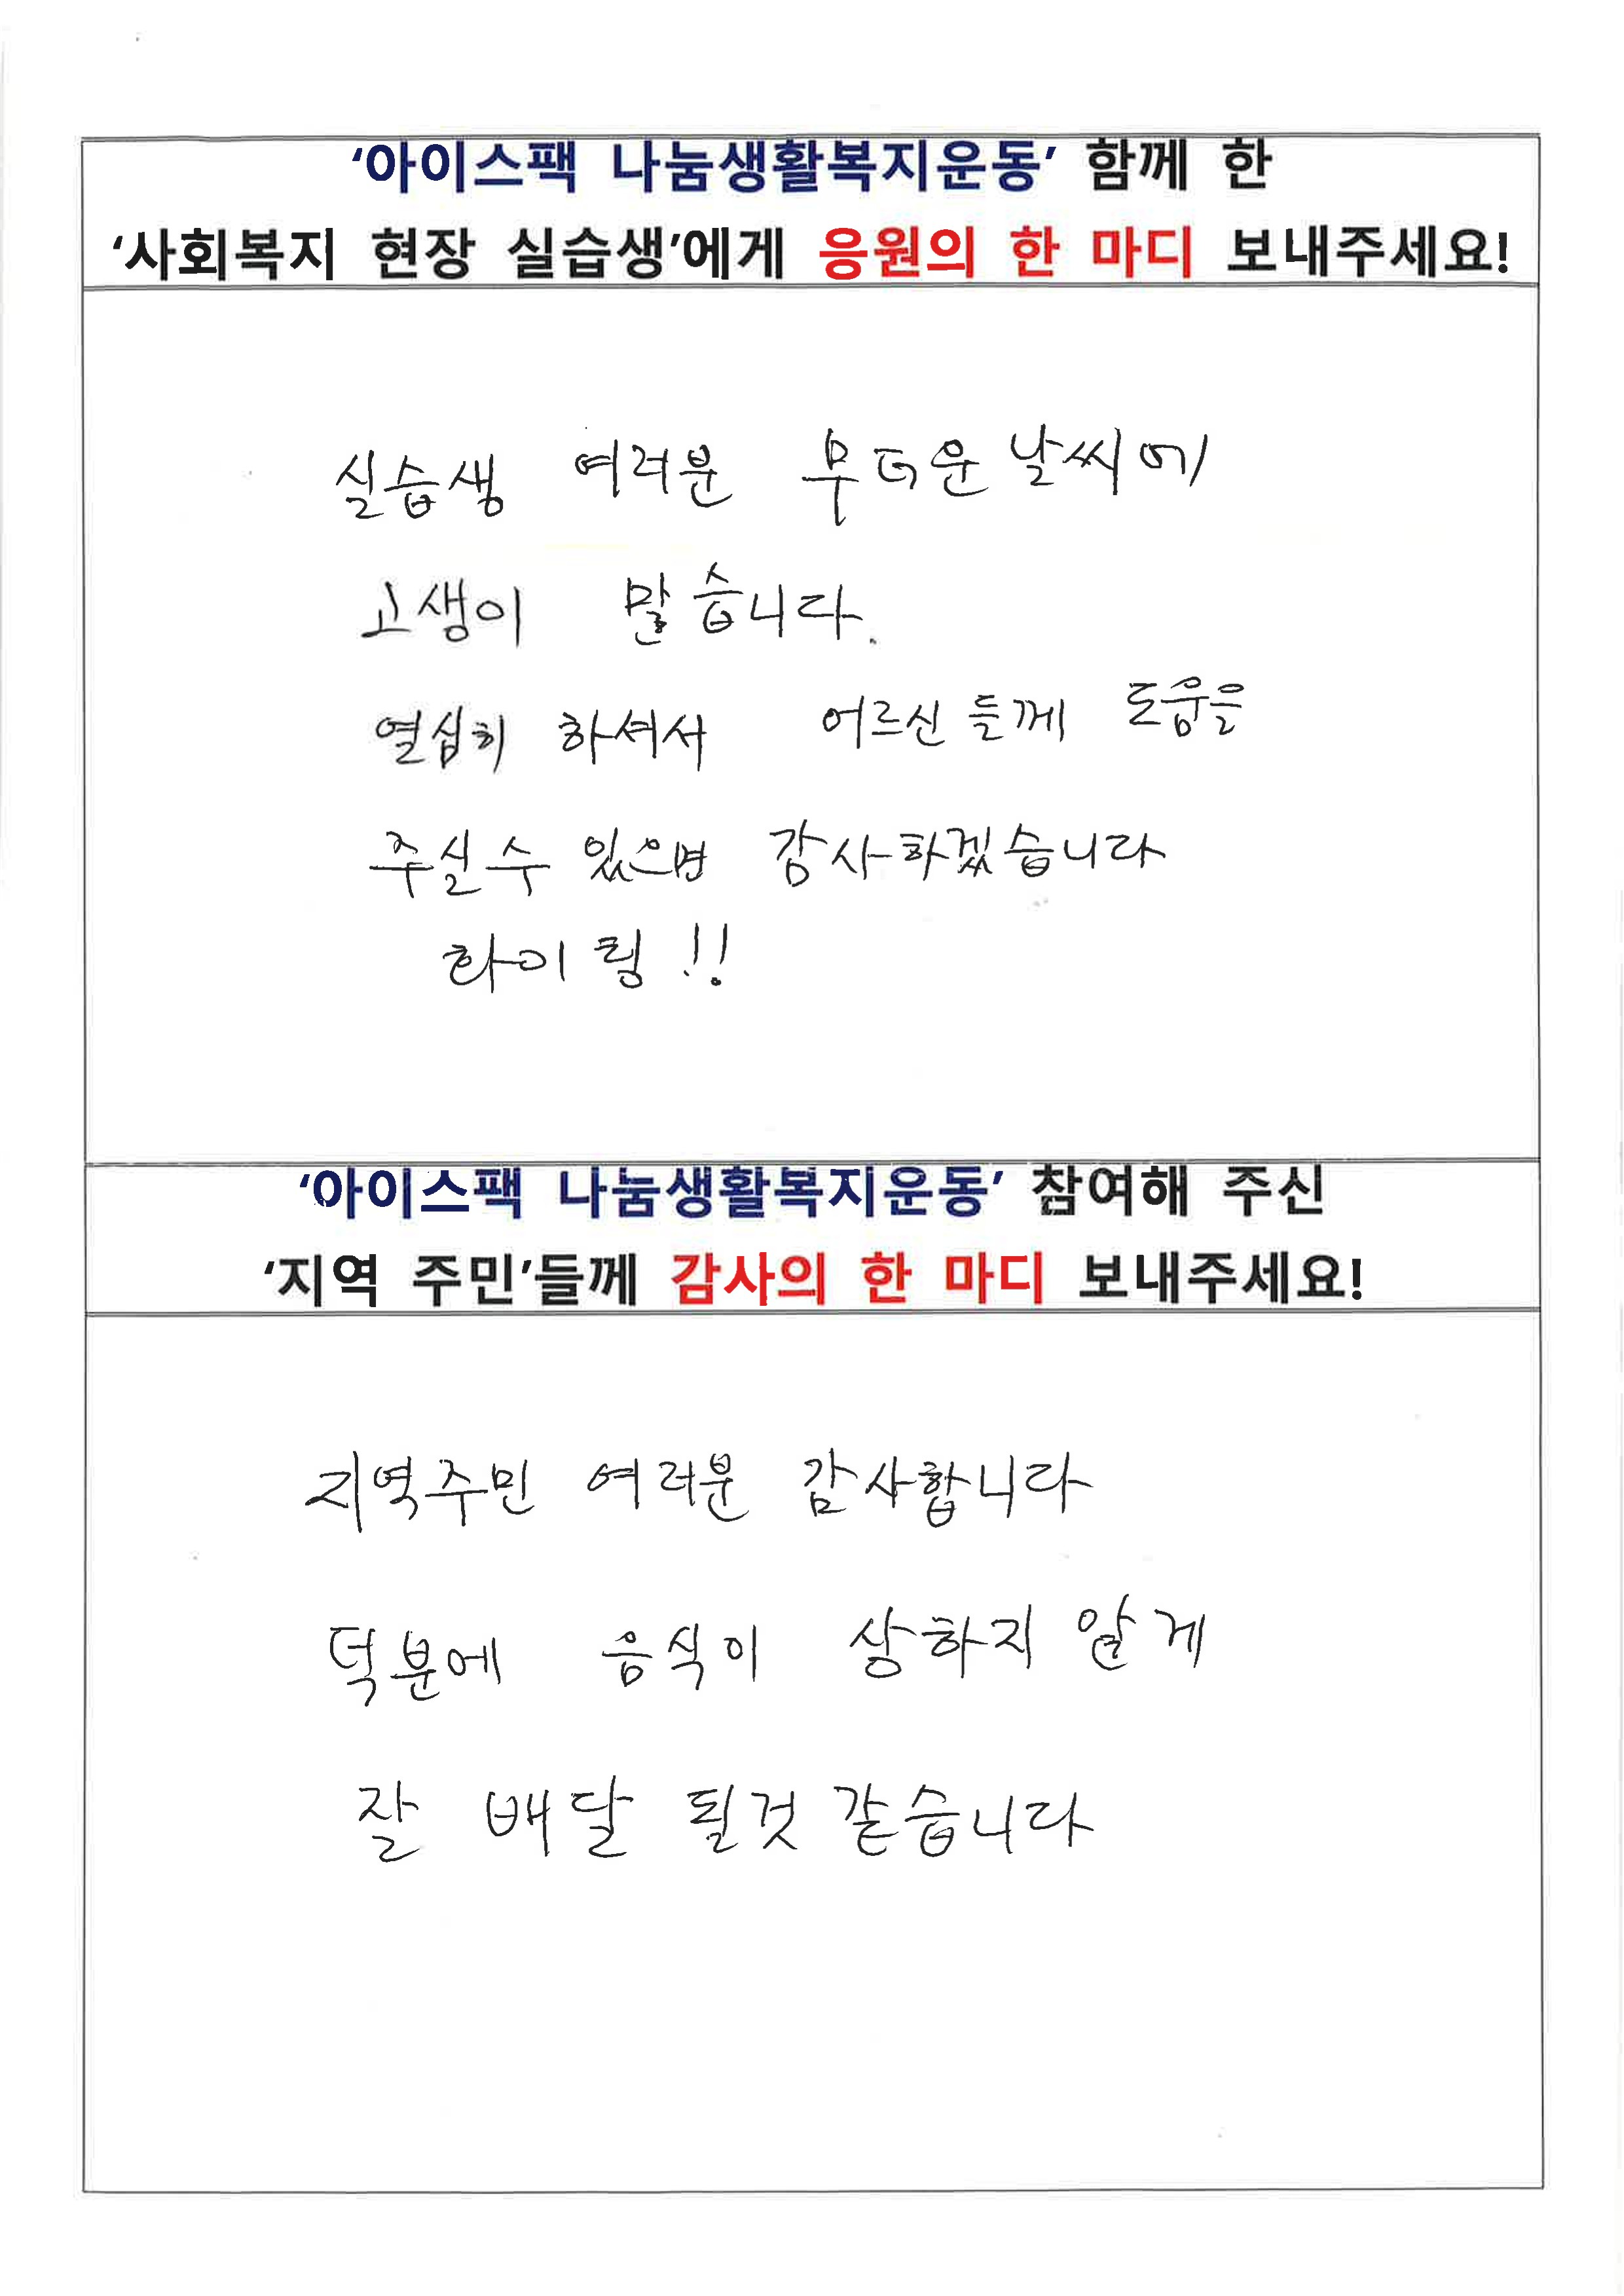 ‘아이스팩 나눔생활복지운동’ 함께 한
‘사회복지 현장 실습생’에게 응원의 한 마디 보내주세요!
실습생 여러분 무더운 날씨에
고생이 많습니다.
열심히 하셔서 어르신들께 도움을
주실수 있으면 감사하겠습니다
화이팅!!
‘아이스팩 나눔생활복지운동’ 참여해 주신
‘지역 주민’들께 감사의 한 마디 보내주세요!
지역주민 여러분 감사합니다
덕분에 음식이 상하지 않게
잘 배달 될것 같습니다